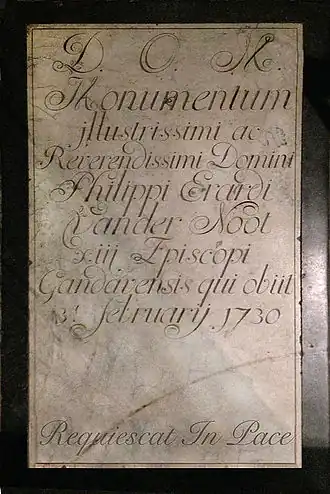 D. O. M.
Monumentum
jllustrissimi ac
Reverendissimi Domini
Philippi Erardi
Vander Noot
xiij Episcopi
Gandavensis qui obiit
3. februarij 1730
Requiescat In Pace